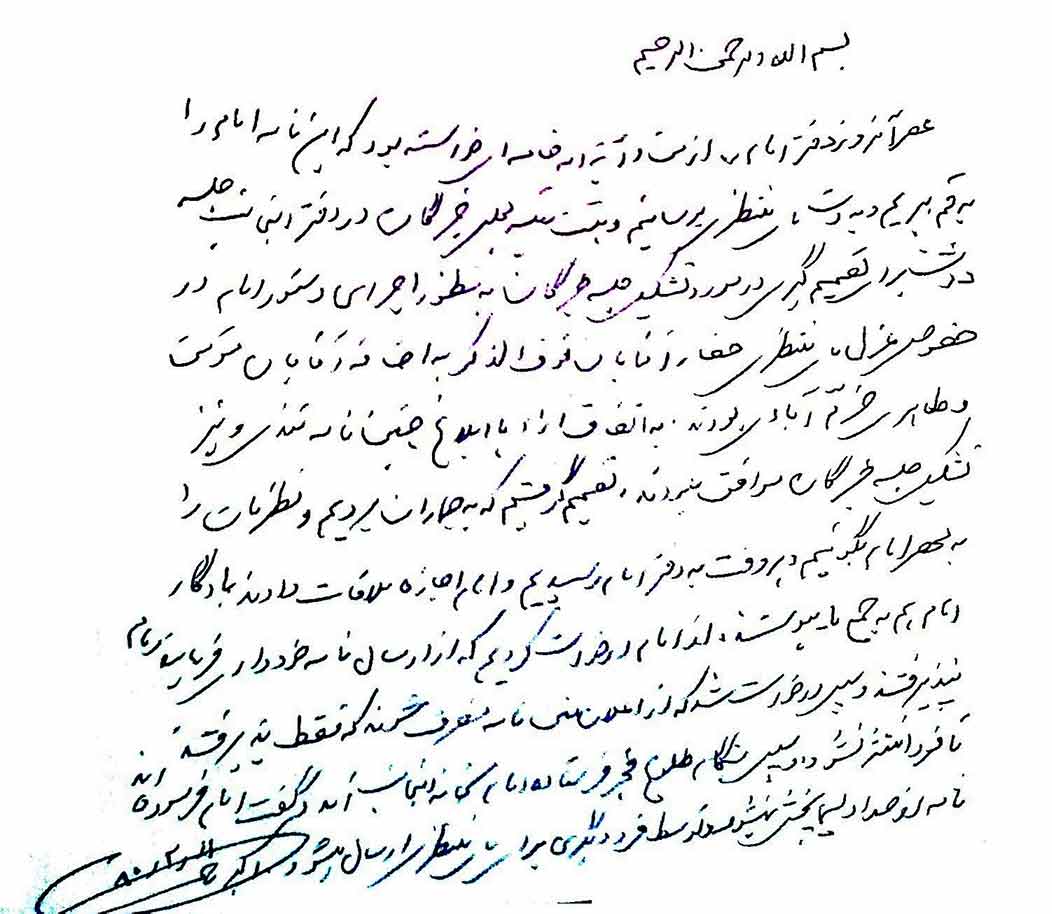 بسم الله الرحمن الرحیم
عصر آنروز دفتر امام از من و آیة الله خامنه‌ای خواسته بود که این نامه امام را
به قم ببریم و بدست آقای منتظری برسانیم و هیئت رئیسه مجلس خبرگان در دفتر اینجانب جلسه
داشتند برای تصمیم گیری در مورد تشکیل جلسه خبرگان به منظور اجرای دستور امام در
خصوص عزل آقای منتظری حضار آقایان فوق الذکر به اضافه آقایان مؤمن
و طاهری خرم آبادی بودند. به اتفاق آراء با ابلاغ چنین نامه تندی و نیز
تشکیل جلسه خبرگان موافق نبودند، تصمیم گرفتیم که به جماران برویم و نظرمان را
به محضر امام بگوئیم دیروقت به دفتر امام رسیدیم و امام اجازه ملاقات دادند یادگار
امام هم به جمع ما پیوستند، از امام درخواست کردیم که از ارسال نامه خودداری فرمایند امام
نپذیرفتند و سپس درخواست شد که از اعلان متن نامه منصرف شوند که فقط پذیرفتند
تا فردا منتشر نشود و سپس هنگام طلوع فجر فرستاده امام بخانه اینجانب آمد و گفت امام فرموده‌اند
نامه از صدا و سیما پخش نمیشود و توسط فرد دیگری برای آقای منتظری ارسال میشود